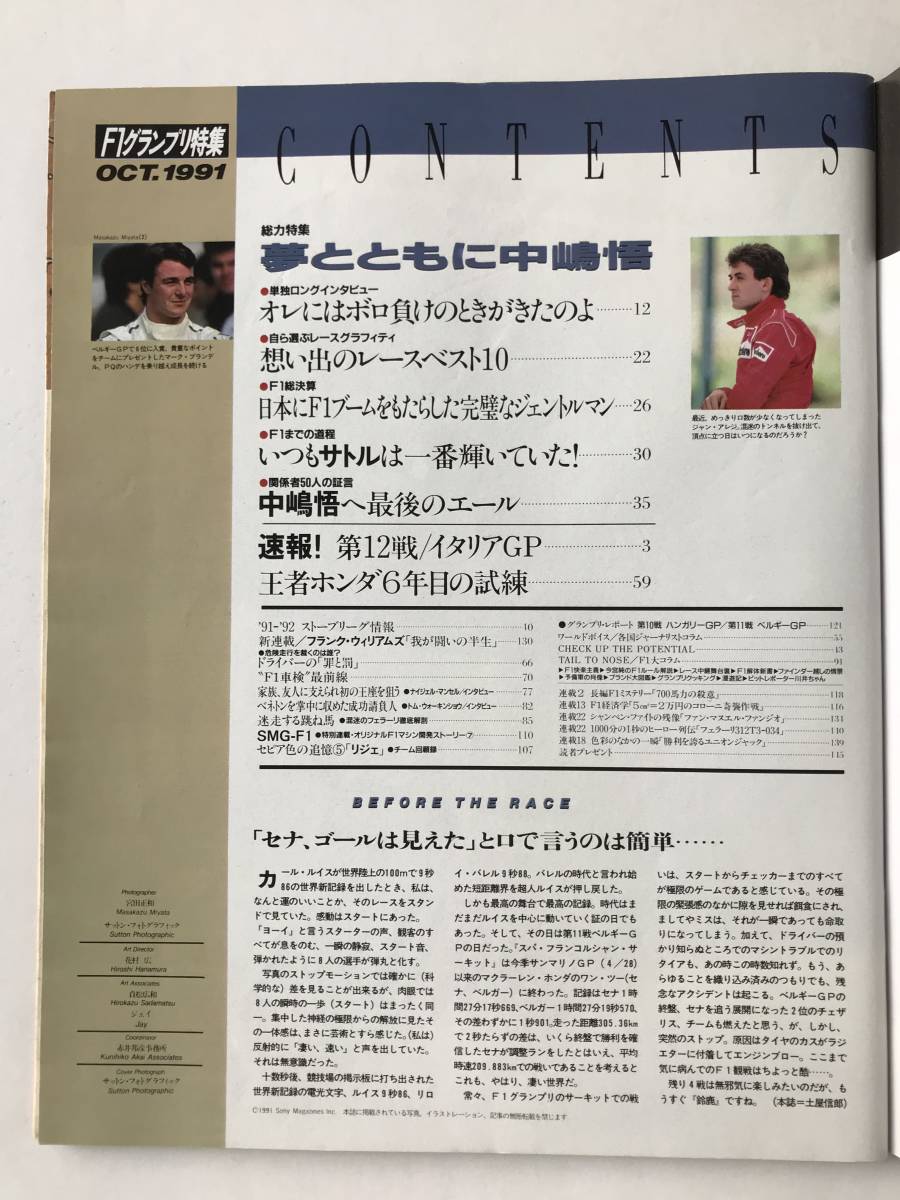 F1グランプリ特集
OCT.1991
CONTENTS
Masakazu Miyata(2)
ベルギーGPで6位に入賞、貴重なポイント
をチームにプレゼントしたマーク・ブランデ
ル。PQのハンデを乗り越え成長を続ける
総力特集
夢とともに中嶋悟
●単独ロングインタビュー
オレにはボロ負けのときがきたのよ………12
●自ら選ぶレースグラフィティ
想い出のレースベスト10………22
●F1総決算
日本にF1ブームをもたらした完璧なジェントルマン……26
●F1までの道程
いつもサトルは一番輝いていた!………30
●関係者50人の証言
中嶋悟へ最後のエール………35
速報! 第12戦/イタリアGP………3
王者ホンダ6年目の試練………59
最近、めっきり口数が少なくなってしまった
ジャン・アレジ。混迷のトンネルを抜け出て、
頂点に立つ日はいつになるのだろうか?
'91-'92 ストーブリーグ情報………40
新連載/フランク・ウィリアムズ「我が闘いの半生」……130
●危険走行を裁くのは誰?
ドライバーの「罪と罰」………66
"F1車検"最前線………70
家族、友人に支えられ初の王座を狙う ●ナイジェル・マンセル/インタビュー………77
ベネトンを掌中に収めた成功請負人 ●トム・ウォーキンショウ/インタビュー………82
迷走する跳ね馬 ●混迷のフェラーリ徹底解剖………85
SMG-F1 ●特別連載・オリジナルF1マシン開発ストーリー⑦………110
セピア色の追憶⑤「リジェ」 ●チーム回顧録………107
●グランプリ・レポート 第10戦 ハンガリーGP/第11戦 ベルギーGP………121
ワールドボイス/各国ジャーナリストコラム………55
CHECK UP THE POTENTIAL………43
TAIL TO NOSE/F1大コラム………91
▶F1快楽主義▶今宮純のF1ルール解説▶レース中継舞台裏▶F1解体新書▶ファインダー越しの情景
▶予備軍の肖像▶ブランド大図鑑▶グランプリウッキング▶漫遊記▶ピットレポーター川井ちゃん
連載2 長編F1ミステリー「700馬力の殺意」………118
連載13 F1経済学「5㎝²=2万円のコローニ奇襲作戦」………116
連載22 シャンペン・ファイトの残像「ファン・マヌエル・ファンジオ」………134
連載22 1000分の1秒のヒーロー列伝「フェラーリ312T3-034」………140
連載18 色彩のなかの一瞬「勝利を誇るユニオンジャック」………139
読者プレゼント………145
BEFORE THE RACE
「セナ、ゴールは見えた」と口で言うのは簡単……
カール・ルイスが世界陸上の100mで9秒
86の世界新記録を出したとき、私は、
なんと運のいいことか、そのレースをスタン
ドで見ていた。感動はスタートにあった。
「ヨーイ」と言うスターターの声、観客のす
べてが息をのむ、一瞬の静寂、スタート音、
弾かれたように8人の選手が弾丸と化す。
写真のストップモーションでは確かに(科
学的な)差を見ることが出来るが、肉眼では
8人の瞬時の一歩(スタート)はまったく同
一。集中した神経の極限からの解放に見たそ
の一体感は、まさに芸術とすら感じた。(私は)
反射的に「凄い、速い」と声を出していた。
それは無意識だった。
十数秒後、競技場の掲示板に打ち出された
世界新記録の電光文字、ルイス9秒86、リロ
イ・バレル9秒88。バレルの時代と言われ始
めた短距離界を超人ルイスが押し戻した。
しかも最高の舞台で最高の記録。時代はま
だまだルイスを中心に動いていく証の日でも
あった。そして、その日は第11戦ベルギーG
Pの日だった。「スパ・フランコルシャン・サ
ーキット」は今季サンマリノGP(4/28)
以来のマクラーレン・ホンダのワン・ツー(セ
ナ、ベルガー)に終わった。記録はセナ1時
間27分17秒669、ベルガー1時間27分19秒570、
その差わずかに1秒901。走った距離305.36km
で2秒たらずの差は、いくら終盤で勝利を確
信したセナが調整ランをしたとはいえ、平均
時速209.883kmでの戦いであることを考えると
これも、やはり、凄い世界だ。
常々、F1グランプリのサーキットでの戦
いは、スタートからチェッカーまでのすべて
が極限のゲームであると感じている。その極
限の緊張感のなかに隙を見せれば餌食にされ、
ましてやミスは、それが一瞬であっても命取
りになってしまう。加えて、ドライバーの預
かり知らぬところでのマシントラブルでのリ
タイアも、あの時この時数知れず。もう、あ
らゆることを織り込み済みのつもりでも、残
念なアクシデントは起こる。ベルギーGPの
終盤、セナを追う展開になった2位のチェザ
リス、チームも燃えたと思う、が、しかし、
突然のストップ。原因はタイヤのカスがラジ
エターに付着してエンジンブロー。ここまで
気に病んでのF1観戦はちょっと酷……。
残り4戦は無邪気に楽しみたいのだが、も
うすぐ『鈴鹿』ですね。 (本誌=土屋信郎)
Photographer
宮田正和
Masakazu Miyata
サットン・フォトグラフィック
Sutton Photographic
Art Director
花村 広
Hiroshi Hanamura
Art Associates
貞松広和
Hirokazu Sadamatsu
ジェイ
Jay
Coordinator
赤井邦彦事務所
Kunihiko Akai Associates
Cover Photograph
サットン・フォトグラフィック
Sutton Photographic
©1991 Sony Magazines Inc. 本誌に掲載されている写真、イラストレーション、記事の無断転載を禁じます